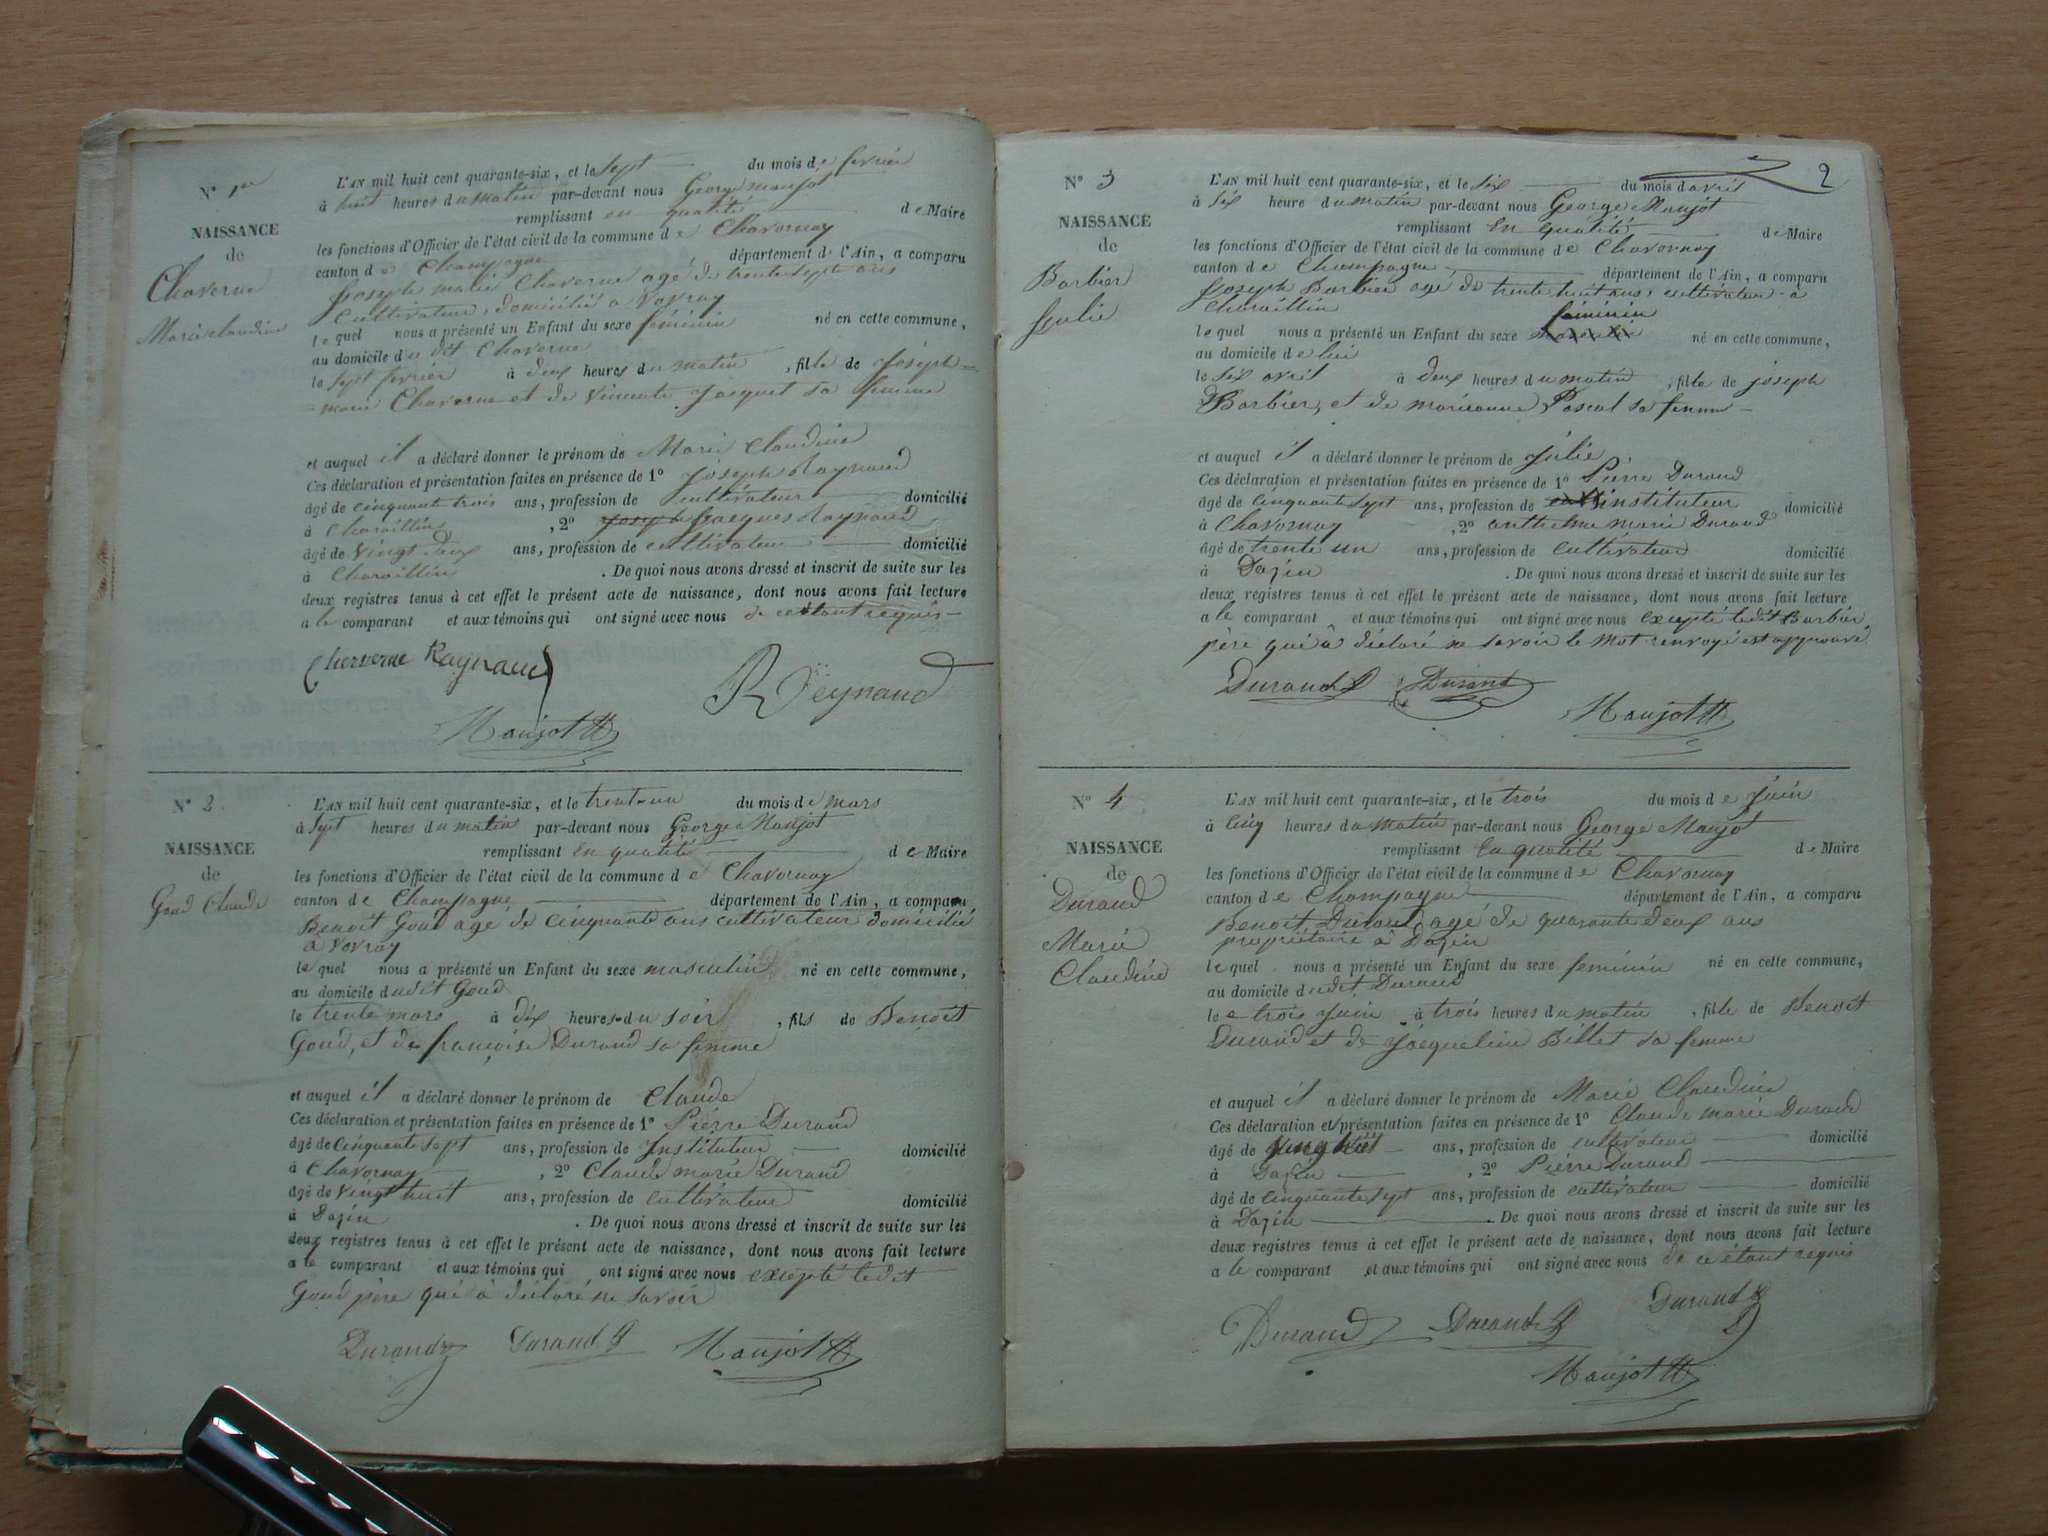 N° 1er
NAISSANCE
de
Chaverne
Marie claudine
L'AN mil huit cent quarante-six, et le sept du mois de fevrier
à huit heures du matin par-devant nous George Maujot
remplissant en qualité de Maire
les fonctions d'Officier de l'état civil de la commune de Chavornay
canton de Champagne département de l'Ain, a comparu
Joseph marie Chaverne agé de trente sept ans
cultivateur, domicilié a Vovray
lequel nous a présenté un Enfant du sexe féminin né en cette commune,
au domicile du dit Chaverne
le sept fevrier à deux heures du matin, fille de Joseph
marie Chaverne et de Vincente Jacquet sa femme
et auquel il a déclaré donner le prénom de Marie Claudine
Ces déclaration et présentation faites en présence de 1° Joseph Raynaud
âgé de cinquante trois ans, profession de cultivateur domicilié
à Charaillin, 2° Joseph Jacques Raynaud
âgé de vingt deux ans, profession de cultivateur domicilié
à Charaillin. De quoi nous avons dressé et inscrit de suite sur les
deux registres tenus à cet effet le présent acte de naissance, dont nous avons fait lecture
a le comparant et aux témoins qui ont signé avec nous de ce étant requis
Cherverne Raynaud
R Reynaud
Maujot
N° 2
NAISSANCE
de
Goud Claude
L'AN mil huit cent quarante-six, et le trent-un du mois de mars
à sept heures du matin par-devant nous George Maujot
remplissant en qualité de Maire
les fonctions d'Officier de l'état civil de la commune de Chavornay
canton de Champagne département de l'Ain, a comparu
Benoit Goud agé de cinquante ans cultivateur domicilié
à Vovray
lequel nous a présenté un Enfant du sexe masculin né en cette commune,
au domicile dudit Goud
le trente mars à dix heures du soir, fils de Benoit
Goud, et de françoise Durand sa femme
et auquel il a déclaré donner le prénom de Claude
Ces déclaration et présentation faites en présence de 1° Pierre Durand
âgé de cinquante sept ans, profession de Instituteur domicilié
à Chavornay, 2° Claude marie Durand
âgé de vingt huit ans, profession de cultivateur domicilié
à Dazin. De quoi nous avons dressé et inscrit de suite sur les
deux registres tenus à cet effet le présent acte de naissance, dont nous avons fait lecture
a le comparant et aux témoins qui ont signé avec nous excepté ledit
Goud père qui a déclaré ne savoir
Durand Durand P Maujot
2
N° 3
NAISSANCE
de
Barbier
Julie
L'AN mil huit cent quarante-six, et le six du mois d'avril
à six heure du matin par-devant nous George Maujot
remplissant en qualité de Maire
les fonctions d'Officier de l'état civil de la commune de Chavornay
canton de Champagne département de l'Ain, a comparu
Joseph Barbier agé de trente huit ans cultivateur à
Charaillin
féminin
lequel nous a présenté un Enfant du sexe né en cette commune,
au domicile de lui
le six avril à deux heures du matin, fille de joseph
Barbier, et de marieanne Pascal sa femme
et auquel il a déclaré donner le prénom de Julie
Ces déclaration et présentation faites en présence de 1° Pierre Durand
âgé de cinquante sept ans, profession de instituteur domicilié
à Chavornay, 2° anthelme marie Durand
âgé de trente un ans, profession de cultivateur domicilié
à Dazin. De quoi nous avons dressé et inscrit de suite sur les
deux registres tenus à cet effet le présent acte de naissance, dont nous avons fait lecture
a le comparant et aux témoins qui ont signé avec nous excepté ledit Barbier
père qui a déclaré ne savoir le mot renvoyé est approuvé
Durand P Durand
Maujot
N° 4
NAISSANCE
de
Durand
Marie
Claudine
L'AN mil huit cent quarante-six, et le trois du mois de Juin
à cinq heures du matin par-devant nous George Maujot
remplissant en qualité de Maire
les fonctions d'Officier de l'état civil de la commune de Chavornay
canton de Champagne département de l'Ain, a comparu
Benoit Durand agé de quarante deux ans
propriétaire à Dazin
lequel nous a présenté un Enfant du sexe feminin né en cette commune,
au domicile dudit Durand
le trois Juin à trois heures du matin, fille de Benoit
Durand et de Jacqueline Billet sa femme
et auquel il a déclaré donner le prénom de Marie Claudine
Ces déclaration et présentation faites en présence de 1° Claude marie Durand
âgé de vingt huit ans, profession de cultivateur domicilié
à Dazin, 2° Pierre Durand
âgé de cinquante sept ans, profession de cultivateur domicilié
à Dazin. De quoi nous avons dressé et inscrit de suite sur les
deux registres tenus à cet effet le présent acte de naissance, dont nous avons fait lecture
a le comparant et aux témoins qui ont signé avec nous de ce étant requis
Durand Durand P Durand
Maujot